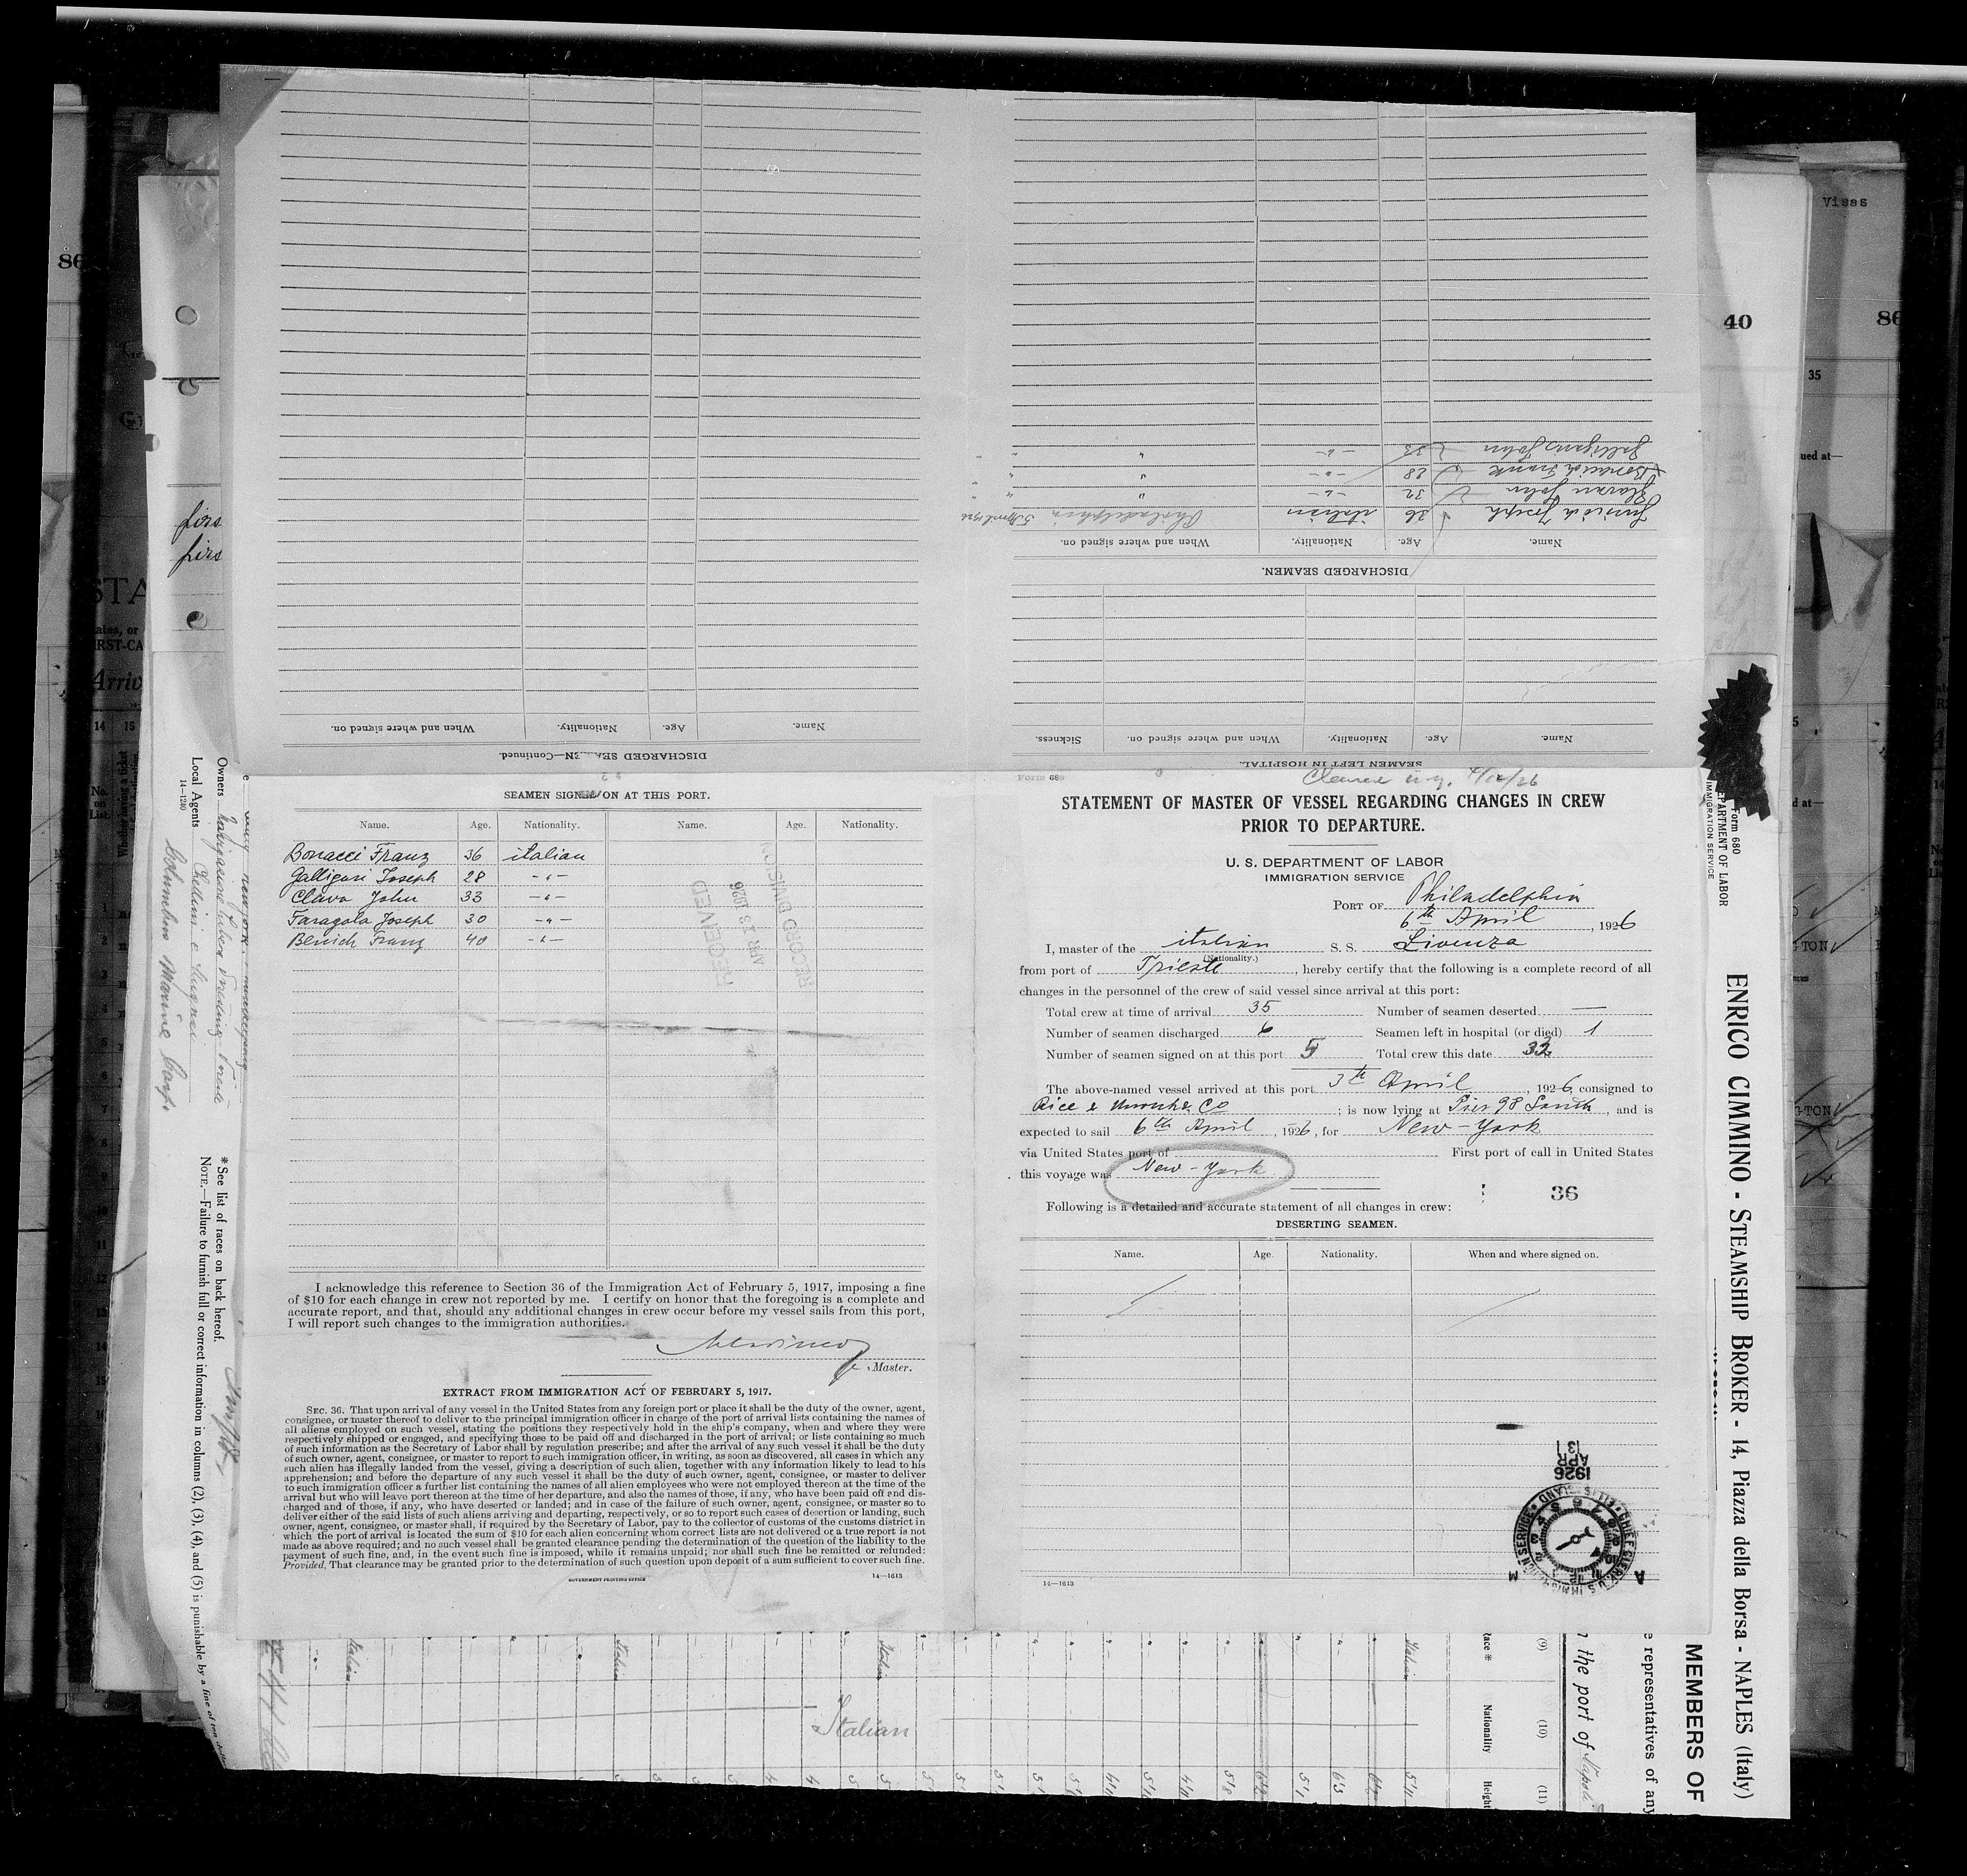 Form 680
Cleared N.Y. 4/12/26
STATEMENT OF MASTER OF VESSEL REGARDING CHANGES IN CREW
PRIOR TO DEPARTURE.
U. S. DEPARTMENT OF LABOR
IMMIGRATION SERVICE
PORT OF Philadelphia
6th April, 1926
I, master of the italian S. S. Livenza
(Nationality.)
from port of Trieste, hereby certify that the following is a complete record of all
changes in the personnel of the crew of said vessel since arrival at this port:
Total crew at time of arrival 35 Number of seamen deserted —
Number of seamen discharged 6 Seamen left in hospital (or died) 1
Number of seamen signed on at this port 5 Total crew this date 33
The above-named vessel arrived at this port 3th April, 1926, consigned to
; is now lying at Pier 98 South, and is
expected to sail 6th April, 1926, for New-York
via United States port of First port of call in United States
this voyage was New-York
36
Following is a detailed and accurate statement of all changes in crew:
DESERTING SEAMEN.
Name. Age. Nationality. When and where signed on.
14—1613
1926
APR
13
CHIEF CLERK, U.S. IMMIGRATION SERVICE ELLIS ISLAND
A M
SEAMEN LEFT IN HOSPITAL.
Name. Age. Nationality. When and where signed on. Sickness.
DISCHARGED SEAMEN.
Name. Age. Nationality. When and where signed on.
Joseph 36 italian Philadelphia 5 April 1926
John 32 -"- "
Frank 28 -"- "
John 33 -"- "
DISCHARGED SEAMEN—Continued.
Name. Age. Nationality. When and where signed on.
SEAMEN SIGNED ON AT THIS PORT.
Name. Age. Nationality. Name. Age. Nationality.
Bonacci Franz 36 italian
Galligari Joseph 28 -"-
Clava John 33 -"-
Faragola Joseph 30 -"-
Benich Franz 40 -"-
RECEIVED
APR 13 1926
RECORD DIVISION
I acknowledge this reference to Section 36 of the Immigration Act of February 5, 1917, imposing a fine
of $10 for each change in crew not reported by me. I certify on honor that the foregoing is a complete and
accurate report, and that, should any additional changes in crew occur before my vessel sails from this port,
I will report such changes to the immigration authorities.
Master.
EXTRACT FROM IMMIGRATION ACT OF FEBRUARY 5, 1917.
SEC. 36. That upon arrival of any vessel in the United States from any foreign port or place it shall be the duty of the owner, agent,
consignee, or master thereof to deliver to the principal immigration officer in charge of the port of arrival lists containing the names of
all aliens employed on such vessel, stating the positions they respectively hold in the ship's company, when and where they were
respectively shipped or engaged, and specifying those to be paid off and discharged in the port of arrival; or lists containing so much
of such information as the Secretary of Labor shall by regulation prescribe; and after the arrival of any such vessel it shall be the duty
of such owner, agent, consignee, or master to report to such immigration officer, in writing, as soon as discovered, all cases in which any
such alien has illegally landed from the vessel, giving a description of such alien, together with any information likely to lead to his
apprehension; and before the departure of any such vessel it shall be the duty of such owner, agent, consignee, or master to deliver
to such immigration officer a further list containing the names of all alien employees who were not employed thereon at the time of the
arrival but who will leave port thereon at the time of her departure, and also the names of those, if any, who have been paid off and dis-
charged and of those, if any, who have deserted or landed; and in case of the failure of such owner, agent, consignee, or master so to
deliver either of the said lists of such aliens arriving and departing, respectively, or so to report such cases of desertion or landing, such
owner, agent, consignee, or master shall, if required by the Secretary of Labor, pay to the collector of customs of the customs district in
which the port of arrival is located the sum of $10 for each alien concerning whom correct lists are not delivered or a true report is not
made as above required; and no such vessel shall be granted clearance pending the determination of the question of the liability to the
payment of such fine, and, in the event such fine is imposed, while it remains unpaid; nor shall such fine be remitted or refunded:
Provided, That clearance may be granted prior to the determination of such question upon deposit of a sum sufficient to cover such fine.
GOVERNMENT PRINTING OFFICE
14—1613
ENRICO CIMMINO - STEAMSHIP BROKER - 14, Piazza della Borsa - NAPLES (Italy)
Form 680
DEPARTMENT OF LABOR
IMMIGRATION SERVICE
MEMBERS OF
e representatives of any
the port of Napoli
(9) (10) (11)
Race * Nationality Height
Italian
Owners
Local Agents
14—1240
* See list of races on back hereof.
NOTE.—Failure to furnish full or correct information in columns (2), (3), (4), and (5) is punishable by a fine of ten dollars
Visas
40
86
86
35
ued at—
firs
firs
STA
ates, or
RST-CA
Arriv
14 15
No. on List.
Whether having a ticket